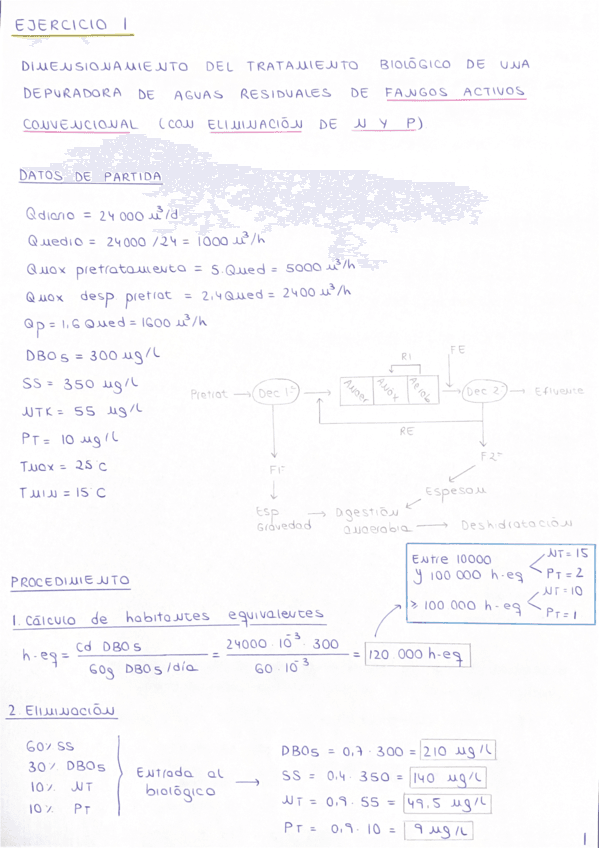 EJERCICIO 1
DIMENSIONAMIENTO DEL TRATAMIENTO BIOLÓGICO DE UNA
DEPURADORA DE AGUAS RESIDUALES DE FANGOS ACTIVOS
CONVENCIONAL (CON ELIMINACIÓN DE N Y P)
DATOS DE PARTIDA
Qdiario = 24000 m³/d
Qmedio = 24000/24 = 1000 m³/h
Qmax pretratamiento = 5·Qmed = 5000 m³/h
Qmax desp pretrat = 2,4Qmed = 2400 m³/h
Qp = 1,6 Qmed = 1600 m³/h
DBO5 = 300 mg/L
SS = 350 mg/L
NTK = 55 mg/L
PT = 10 mg/L
Tmax = 25°C
Tmin = 15°C
RI
FE
Pretrat → Dec 1º → Anaer Anóx Aerób → Dec 2º → Efluente
RE
F1º
F2º
Espesam
Esp Gravedad → Digestión anaerobia → Deshidratación
Entre 10000 y 100 000 h-eq < NT = 15 PT = 2
≥ 100 000 h-eq < NT = 10 PT = 1
PROCEDIMIENTO
1. Cálculo de habitantes equivalentes
h-eq = Cd DBO5 / 60g DBO5/día = 24000·10⁻³·300 / 60·10⁻³ = 120 000 h-eq
2. Eliminación
60% SS
30% DBO5
10% NT
10% PT
Entrada al biológico →
DBO5 = 0,7·300 = 210 mg/L
SS = 0,4·350 = 140 mg/L
NT = 0,9·55 = 49,5 mg/L
PT = 0,9·10 = 9 mg/L
1